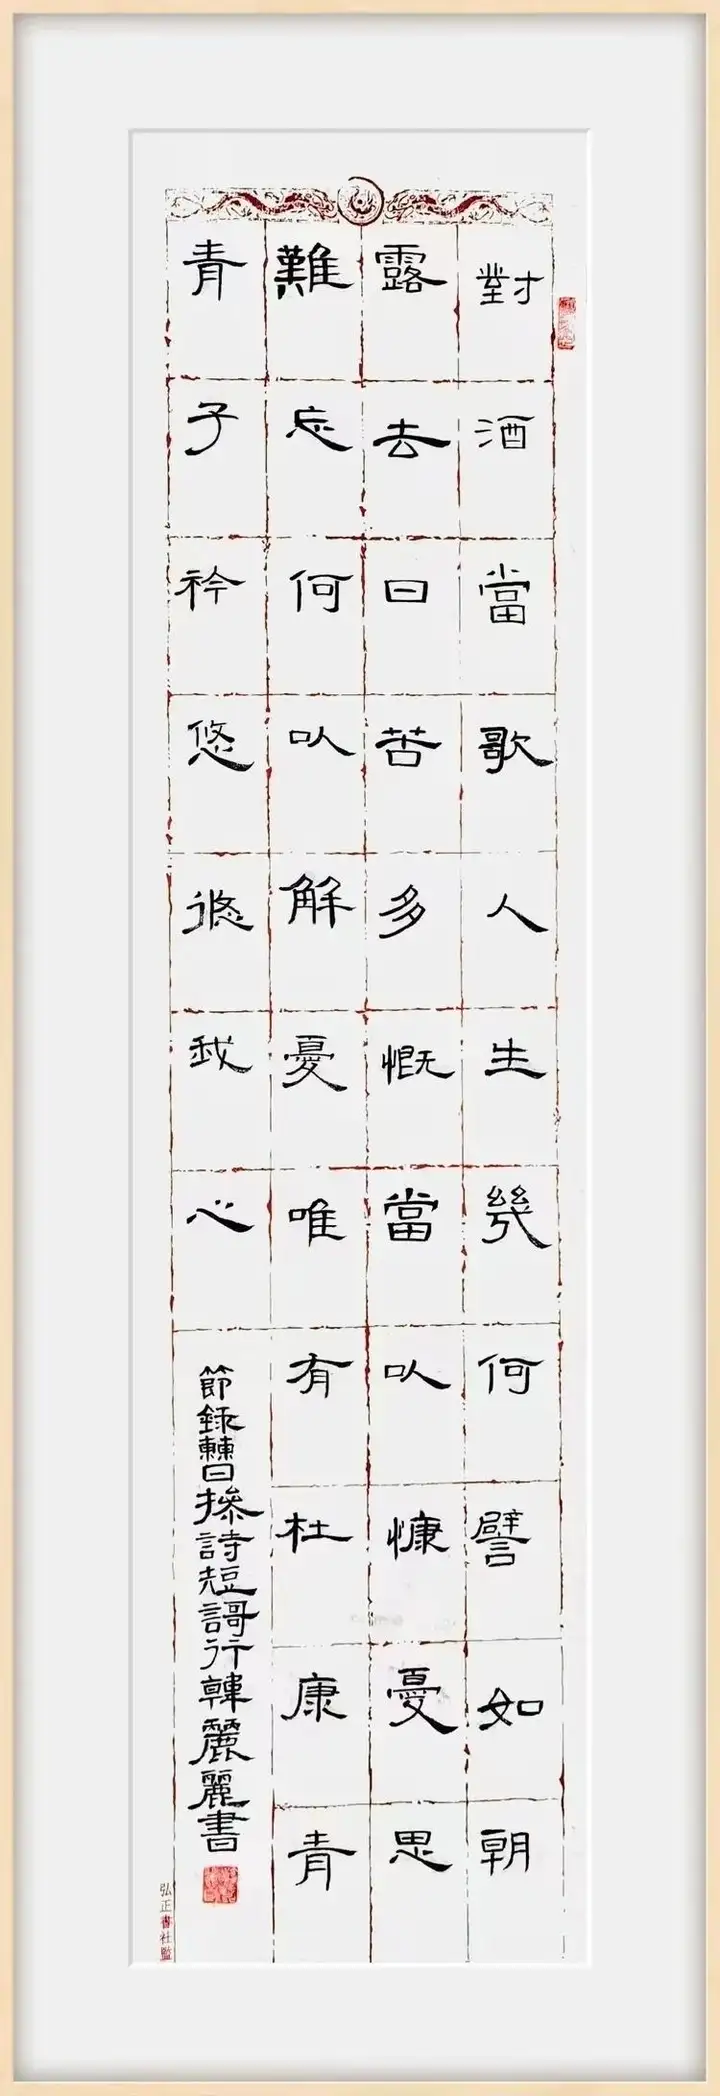 對酒當歌人生幾何譬如朝
露去日苦多慨當以慷憂思
難忘何以解憂唯有杜康青
青子衿悠悠我心
節錄曹操詩短謌行韓麗麗書
弘正書社監